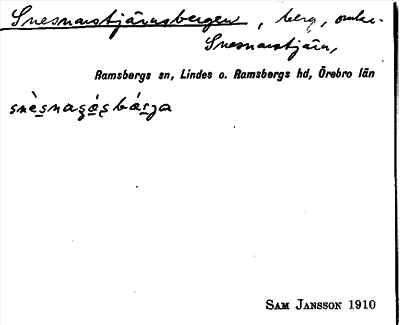 Snesnarstjärnsbergen, berg, omkr.
Snesnarstjärn,
Ramsbergs sn, Lindes o. Ramsbergs hd, Örebro län
SAM JANSSON 1910